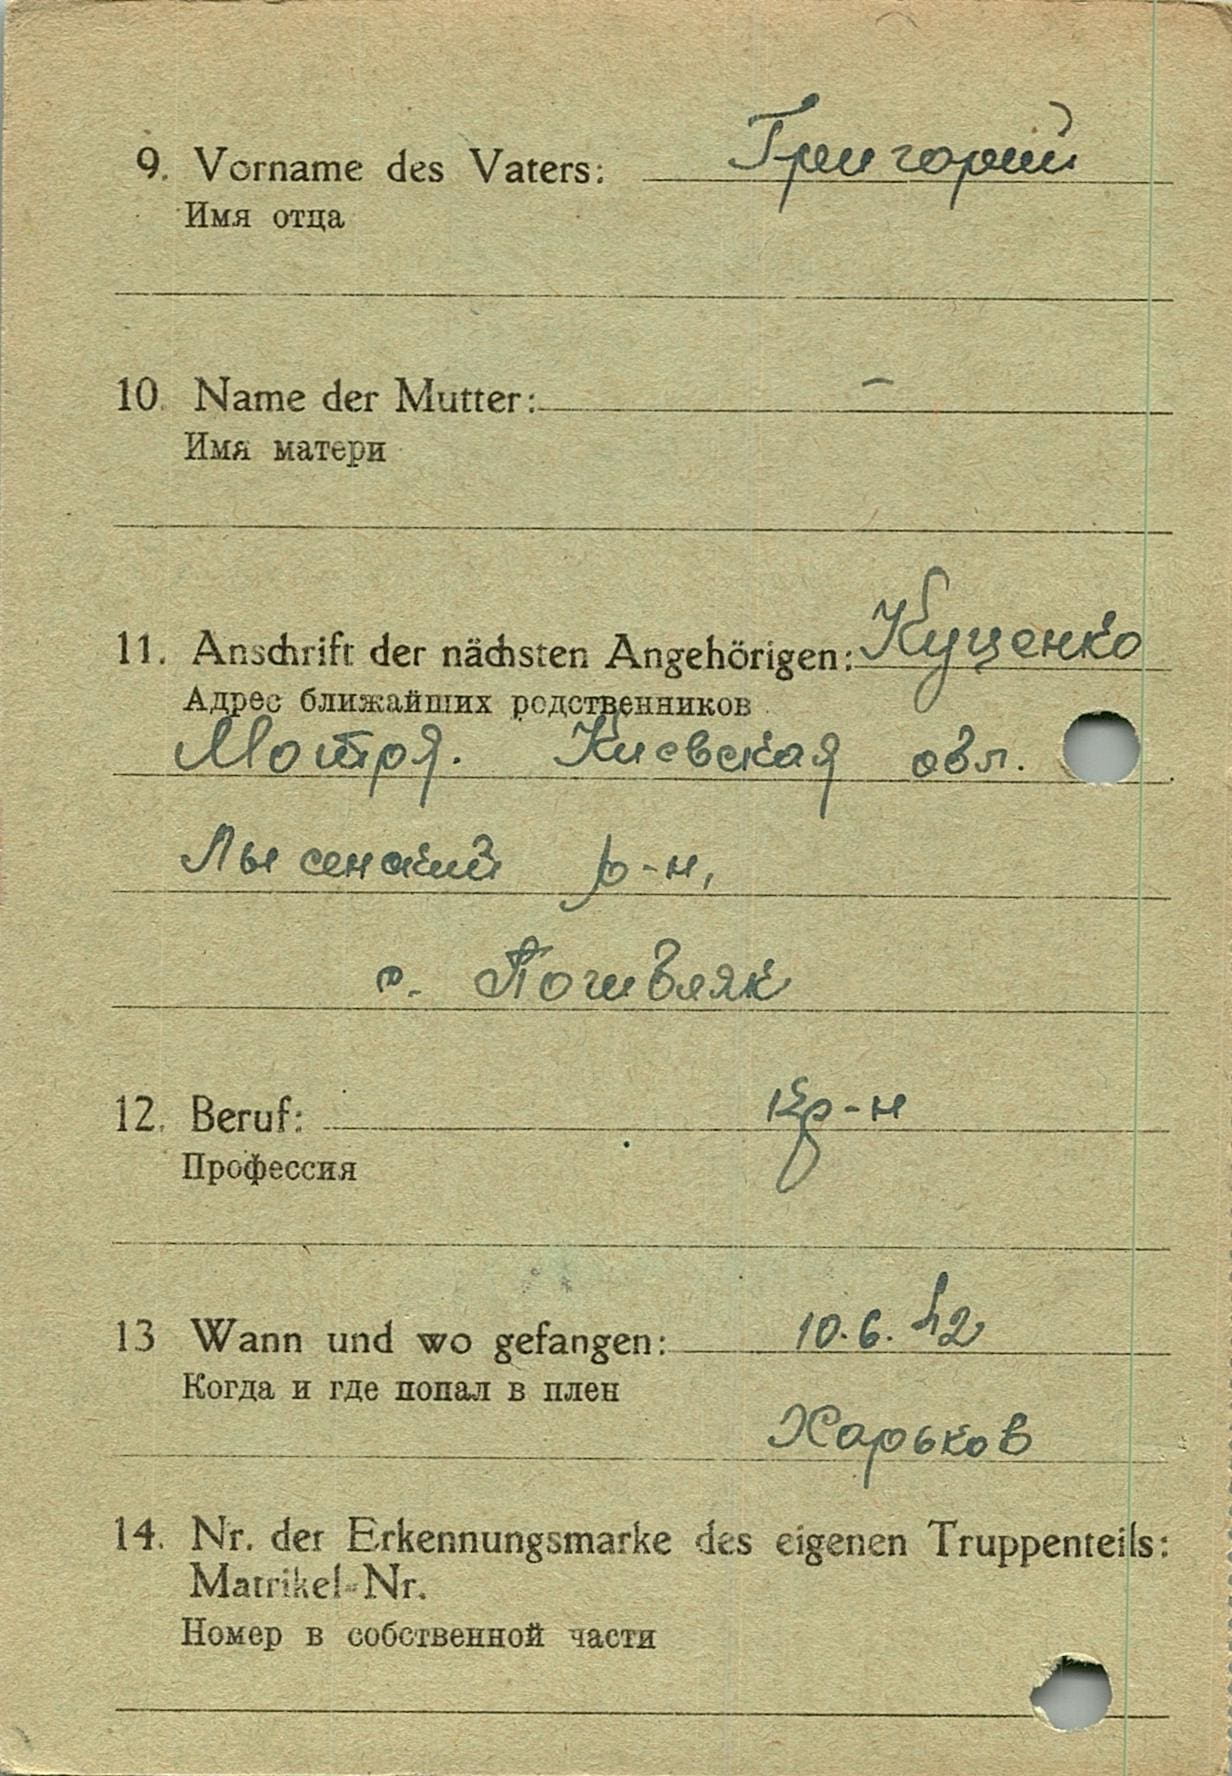 9. Vorname des Vaters: Григорий
Имя отца
10. Name der Mutter: –
Имя матери
11. Anschrift der nächsten Angehörigen: Куценко
Адрес ближайших родственников
Мотря. Киевская обл.
Лысенский р-н,
с. Почивляк
12. Beruf: кр-н
Профессия
13 Wann und wo gefangen: 10.6.42
Когда и где попал в плен
Харьков
14. Nr. der Erkennungsmarke des eigenen Truppenteils:
Matrikel-Nr.
Номер в собственной части